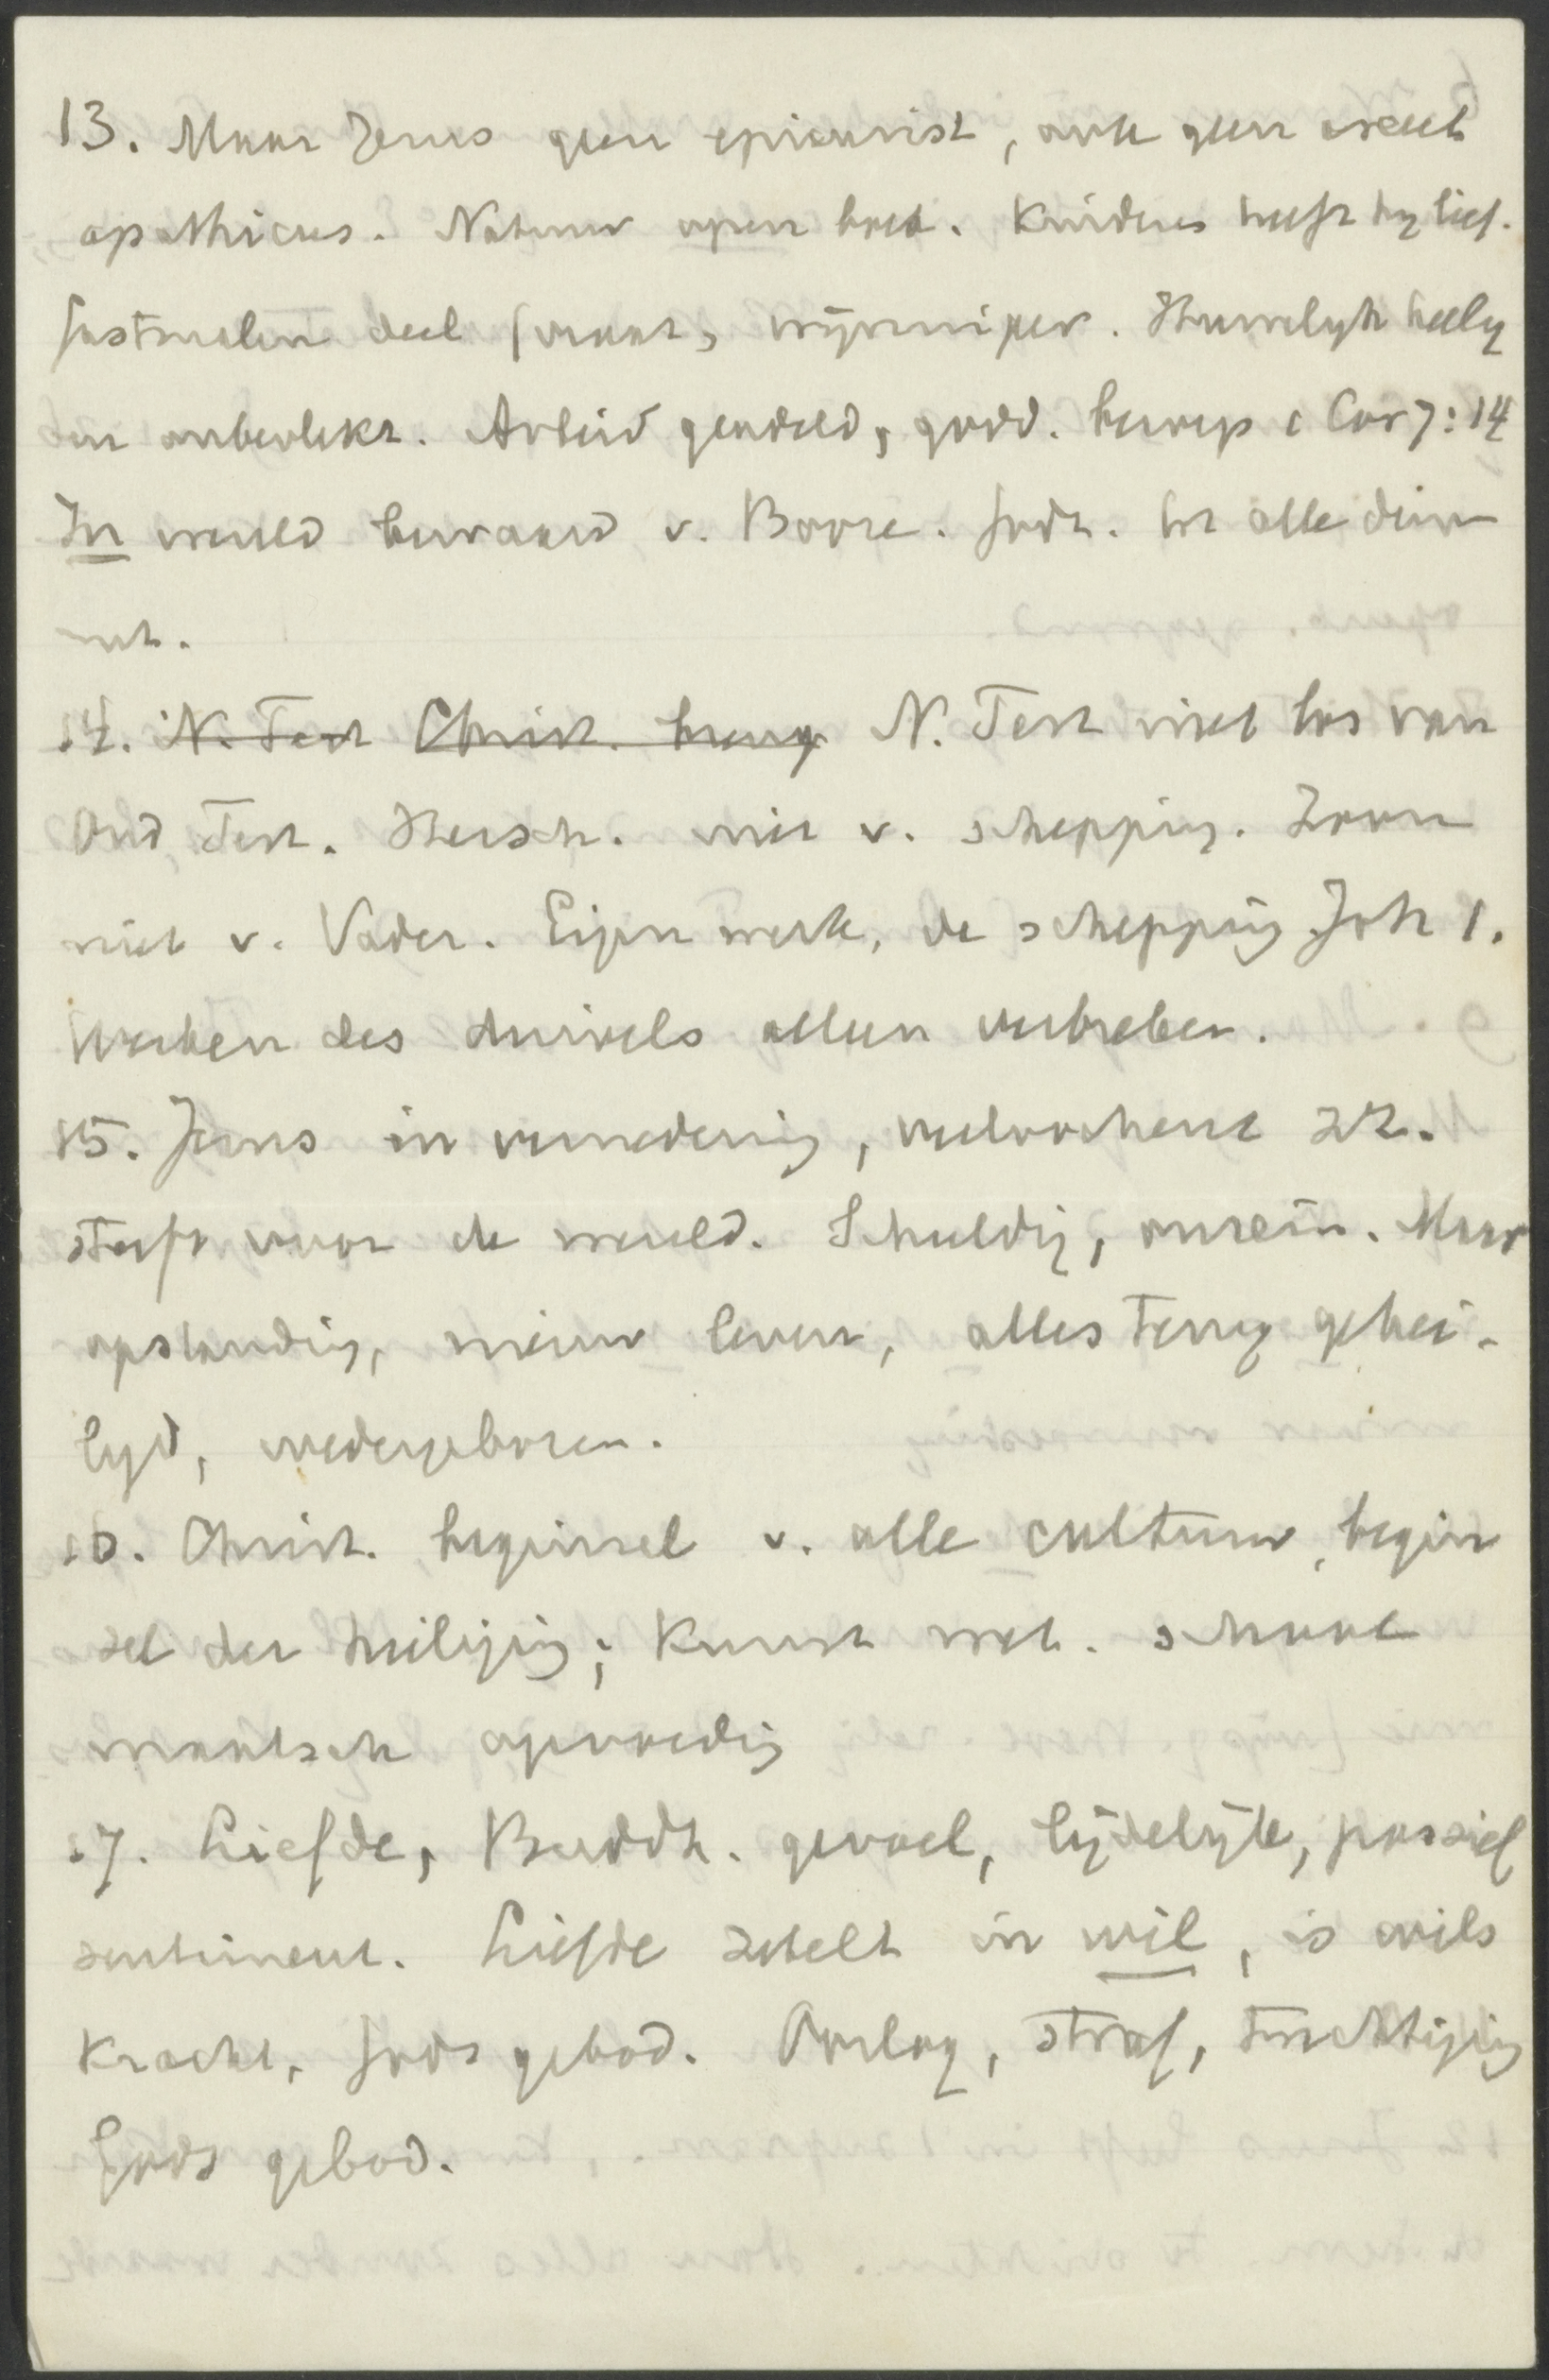 13. Maar Jezus geen epicurist, ook geen asceet
apathicus. Natuur open boek. Kinderen heeft hy lief.
Gastmalen deel genomen, wijndrinker. Huwelyk heilig
en onbevlekt. Arbeid geadeld, godd. beroep 1 Cor 7:14
In wereld bewaard v. Booze. Godz. tot alle din
nut.
14. N. Test Christ. breng N. Test niet los van
Oud Test. Hersch. niet v. schepping. Zoon
niet v. Vader. Eigen werk, de schepping Joh 1.
Werken des duivels alleen verbreken.
15. Jezus in vernedering, verloochent zz.
sterft voor de wereld. Schuldig, onrein. Maar
opstanding, nieuw leven, alles terug gehei-
ligd, wedergeboren.
16. Christ. beginsel v. alle cultuur, begin
sel der heiliging; Kunst wet. school
maatsch opvoeding
17. Liefde, Buddh. gevoel, lijdelijk, passief
sentiment. Liefde zetelt in wil, is wils
kracht, Gods gebod. Oorlog, straf, tuchtiging
Gods gebod.